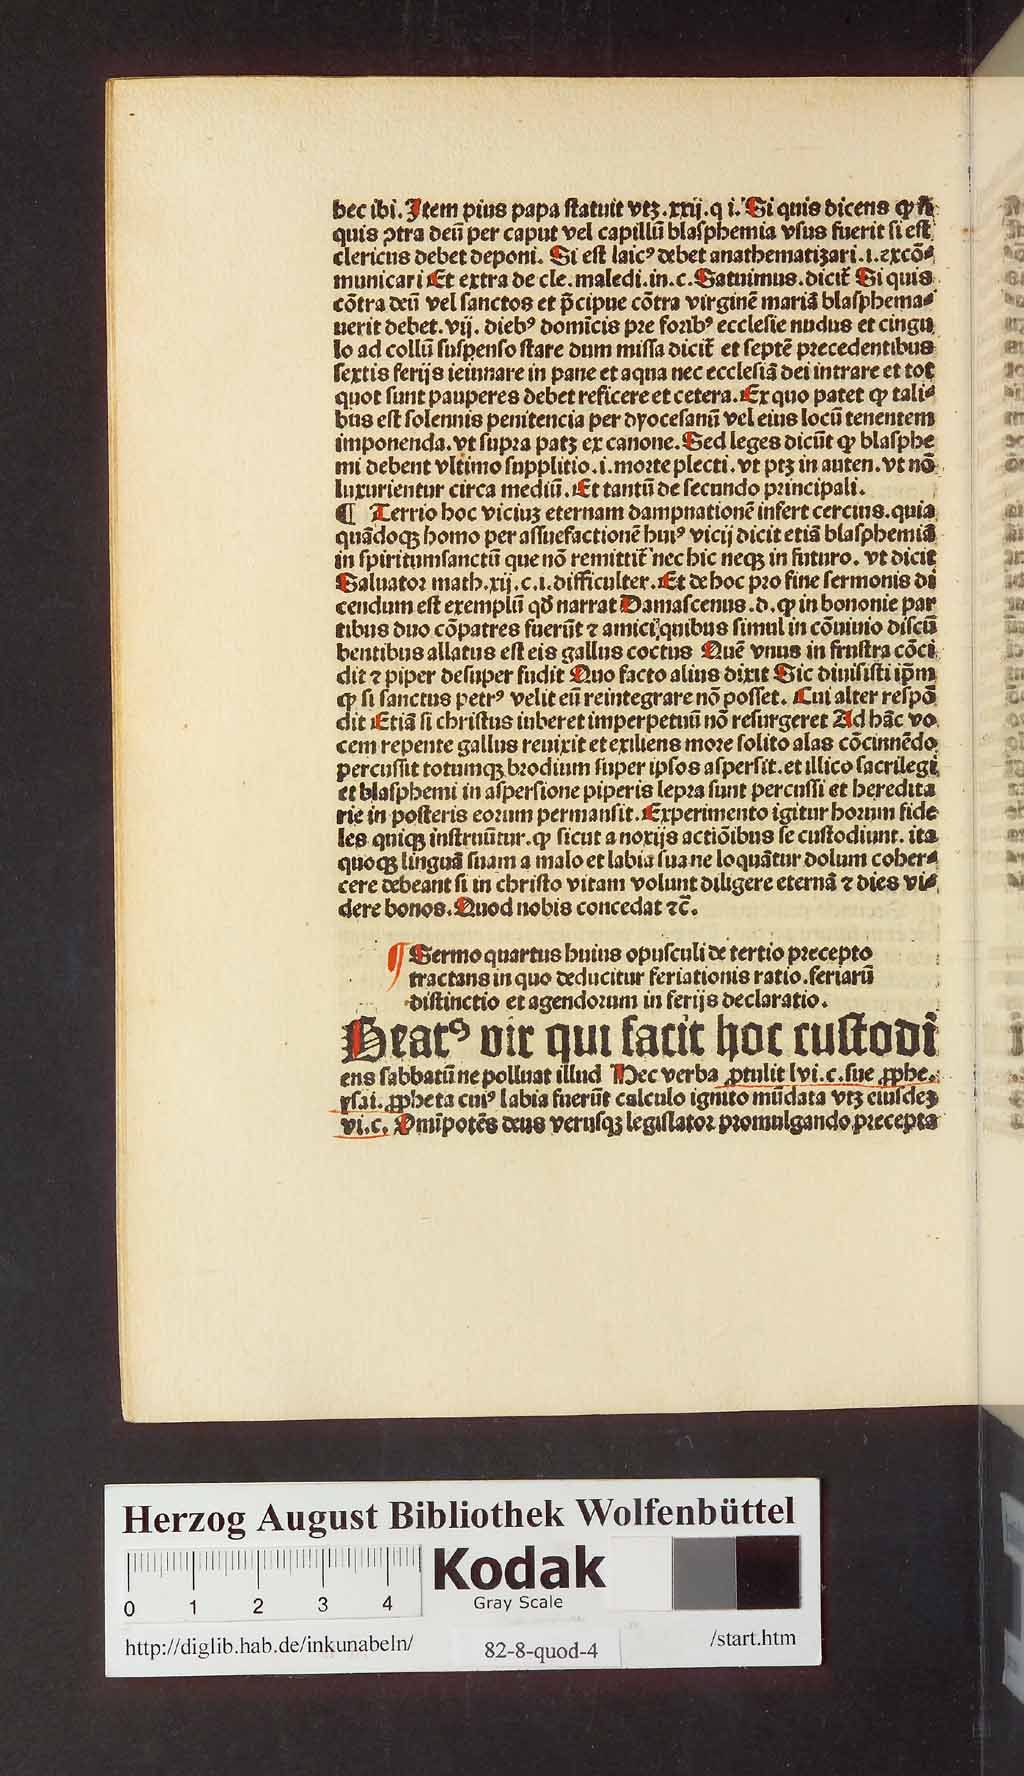 hec ibi. Item pius papa statuit vtꝫ .xxij. q i. Si quis dicens ꝙ si
quis ↄtra deū per caput vel capillū blasphemia vsus fuerit si est
clericus debet deponi. Si est laicꝰ debet anathematizari .i. excō⸗
municari Et extra de cle. maledi. in .c. Satuimus. dicit̄ Si quis
cōtra deū vel sanctos et p̄cipue cōtra virginē mariā blasphema⸗
uerit debet .vij. diebꝰ domicis pre foribꝰ ecclesie nudus et cingu
lo ad collū suspenso stare dum missa dicit̄ et septē precedentibus
sextis ferijs ieiunare in pane et aqua nec ecclesiā dei intrare et tot
quot sunt pauperes debet reficere et cetera. Ex quo patet ꝙ tali⸗
bus est solennis penitencia per dyocesanū vel eius locū tenentem
imponenda. vt supra patꝫ ex canone. Sed leges dicūt ꝙ blasphe
mi debent vltimo supplitio .i. morte plecti. vt ptꝫ in auten. vt nō
luxurientur circa mediū. Et tantū de secundo principali.
¶ Terrio hoc viciuꝫ eternam dampnationē infert cercius. quia
quādoqꝫ homo per assuefactionē huiꝰ vicij dicit etiā blasphemiā
in spiritumsanctū que nō remittit̄ nec hic neqꝫ in futuro. vt dicit
Saluator math. xij. c. i. difficulter. Et de hoc pro fine sermonis di
cendum est exemplū qd̄ narrat Damascenus .d. ꝙ in bononie par
tibus duo cōpatres fuerūt ⁊ amici quibus simul in cōuiuio discū
bentibus allatus est eis gallus coctus Quē vnus in frustra cōci
dit ⁊ piper desuper fudit Quo facto alius dixit Sic diuisisti ip̄m
ꝙ si sanctus petrꝰ velit eū reintegrare nō posset. Cui alter respō
dit Etiā si christus iuberet imperpetuū nō resurgeret Ad hāc vo
cem repente gallus reuixit et exiliens more solito alas cōcinnēdo
percussit totumqꝫ brodium super ipsos aspersit. et illico sacrilegi
et blasphemi in aspersione piperis lepra sunt percussi et heredita
rie in posteris eorum permansit. Experimento igitur horum fide
les quiqꝫ instruūtur. ꝙ sicut a noxijs actiōibus se custodiunt. ita
quoqꝫ linguā suam a malo et labia sua ne loquātur dolum coher⸗
cere debeant si in christo vitam volunt diligere eternā ⁊ dies vi⸗
dere bonos. Quod nobis concedat ⁊c̄.
¶ Sermo quartus huius opusculi de tertio precepto
tractans in quo deducitur feriationis ratio. feriarū
distinctio et agendorum in ferijs declaratio.
Beatꝰ vir qui facit hoc custodi
ens sabbatū ne polluat illud Hec verba ꝓtulit lvi. c. sue ꝓphe.
ysai. ꝓpheta cuiꝰ labia fuerūt calculo ignito mūdata vtꝫ eiusdeꝫ
vi. c. Omīpotēs deus verusqꝫ legislator promulgando precepta
Herzog August Bibliothek Wolfenbüttel
0 1 2 3 4
Kodak
Gray Scale
http://diglib.hab.de/inkunabeln/
82-8-quod-4
/start.htm